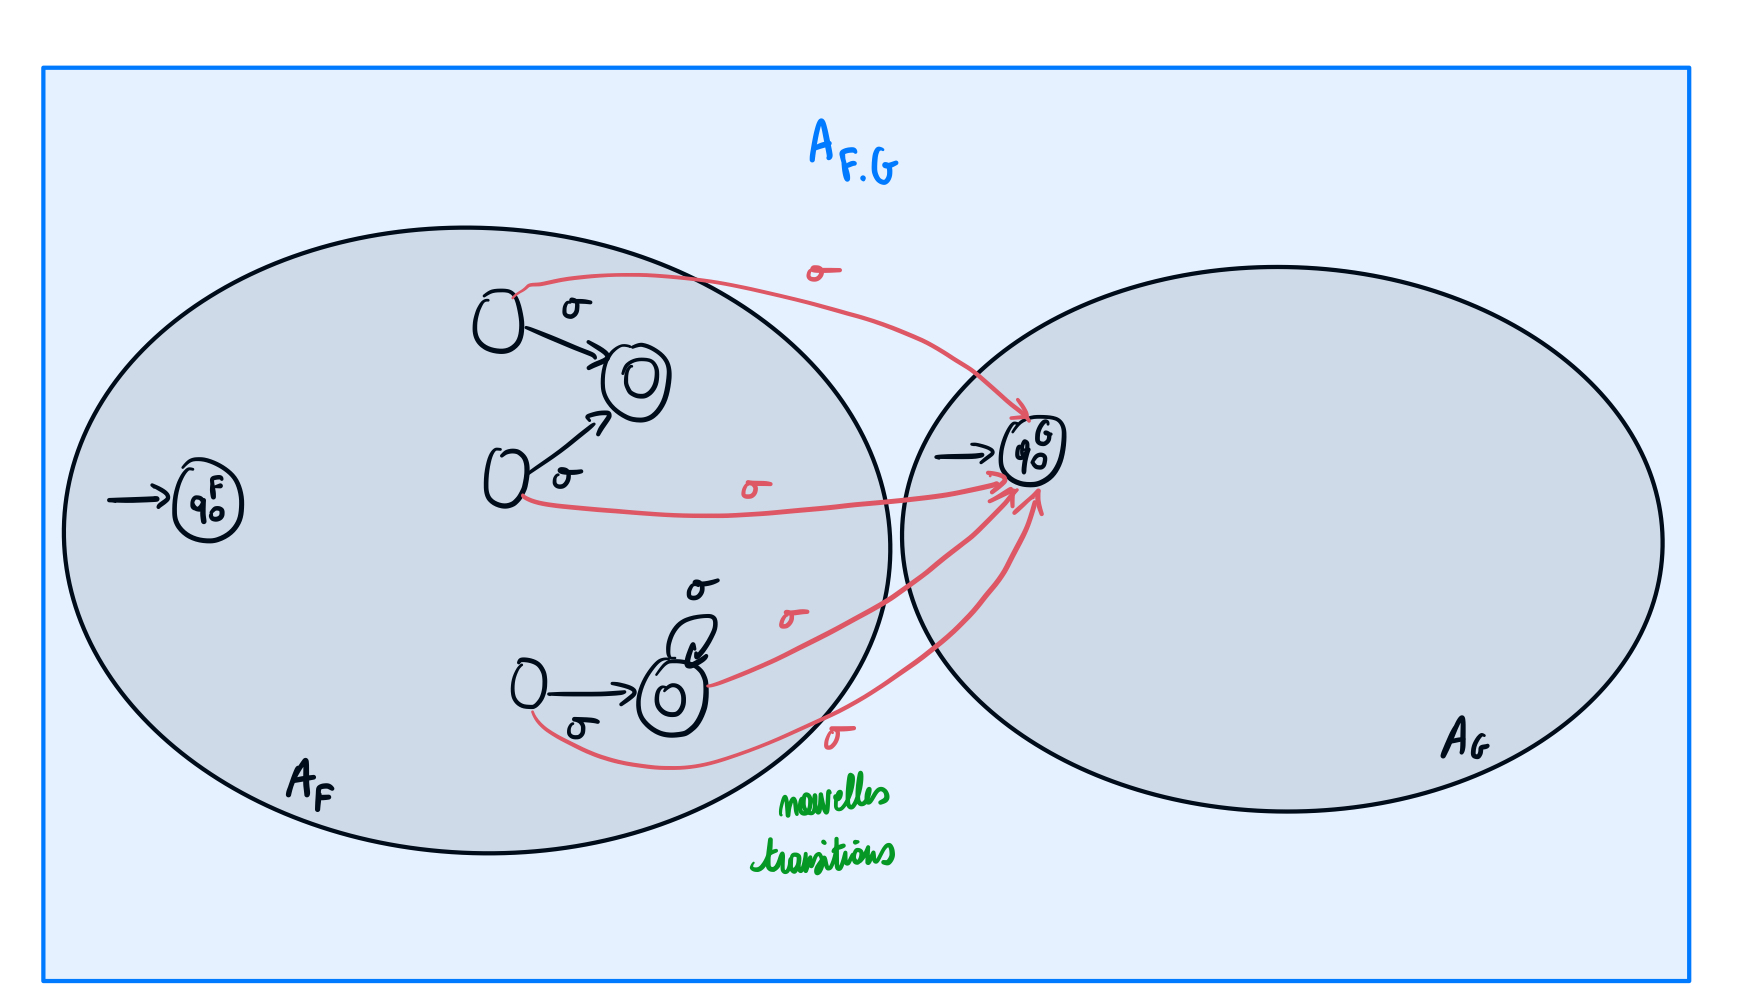 A_{F.G}
σ
σ
q_0^G
σ
q_0^F
σ
σ
σ
σ
σ
σ
A_G
A_F
nouvelles
transitions